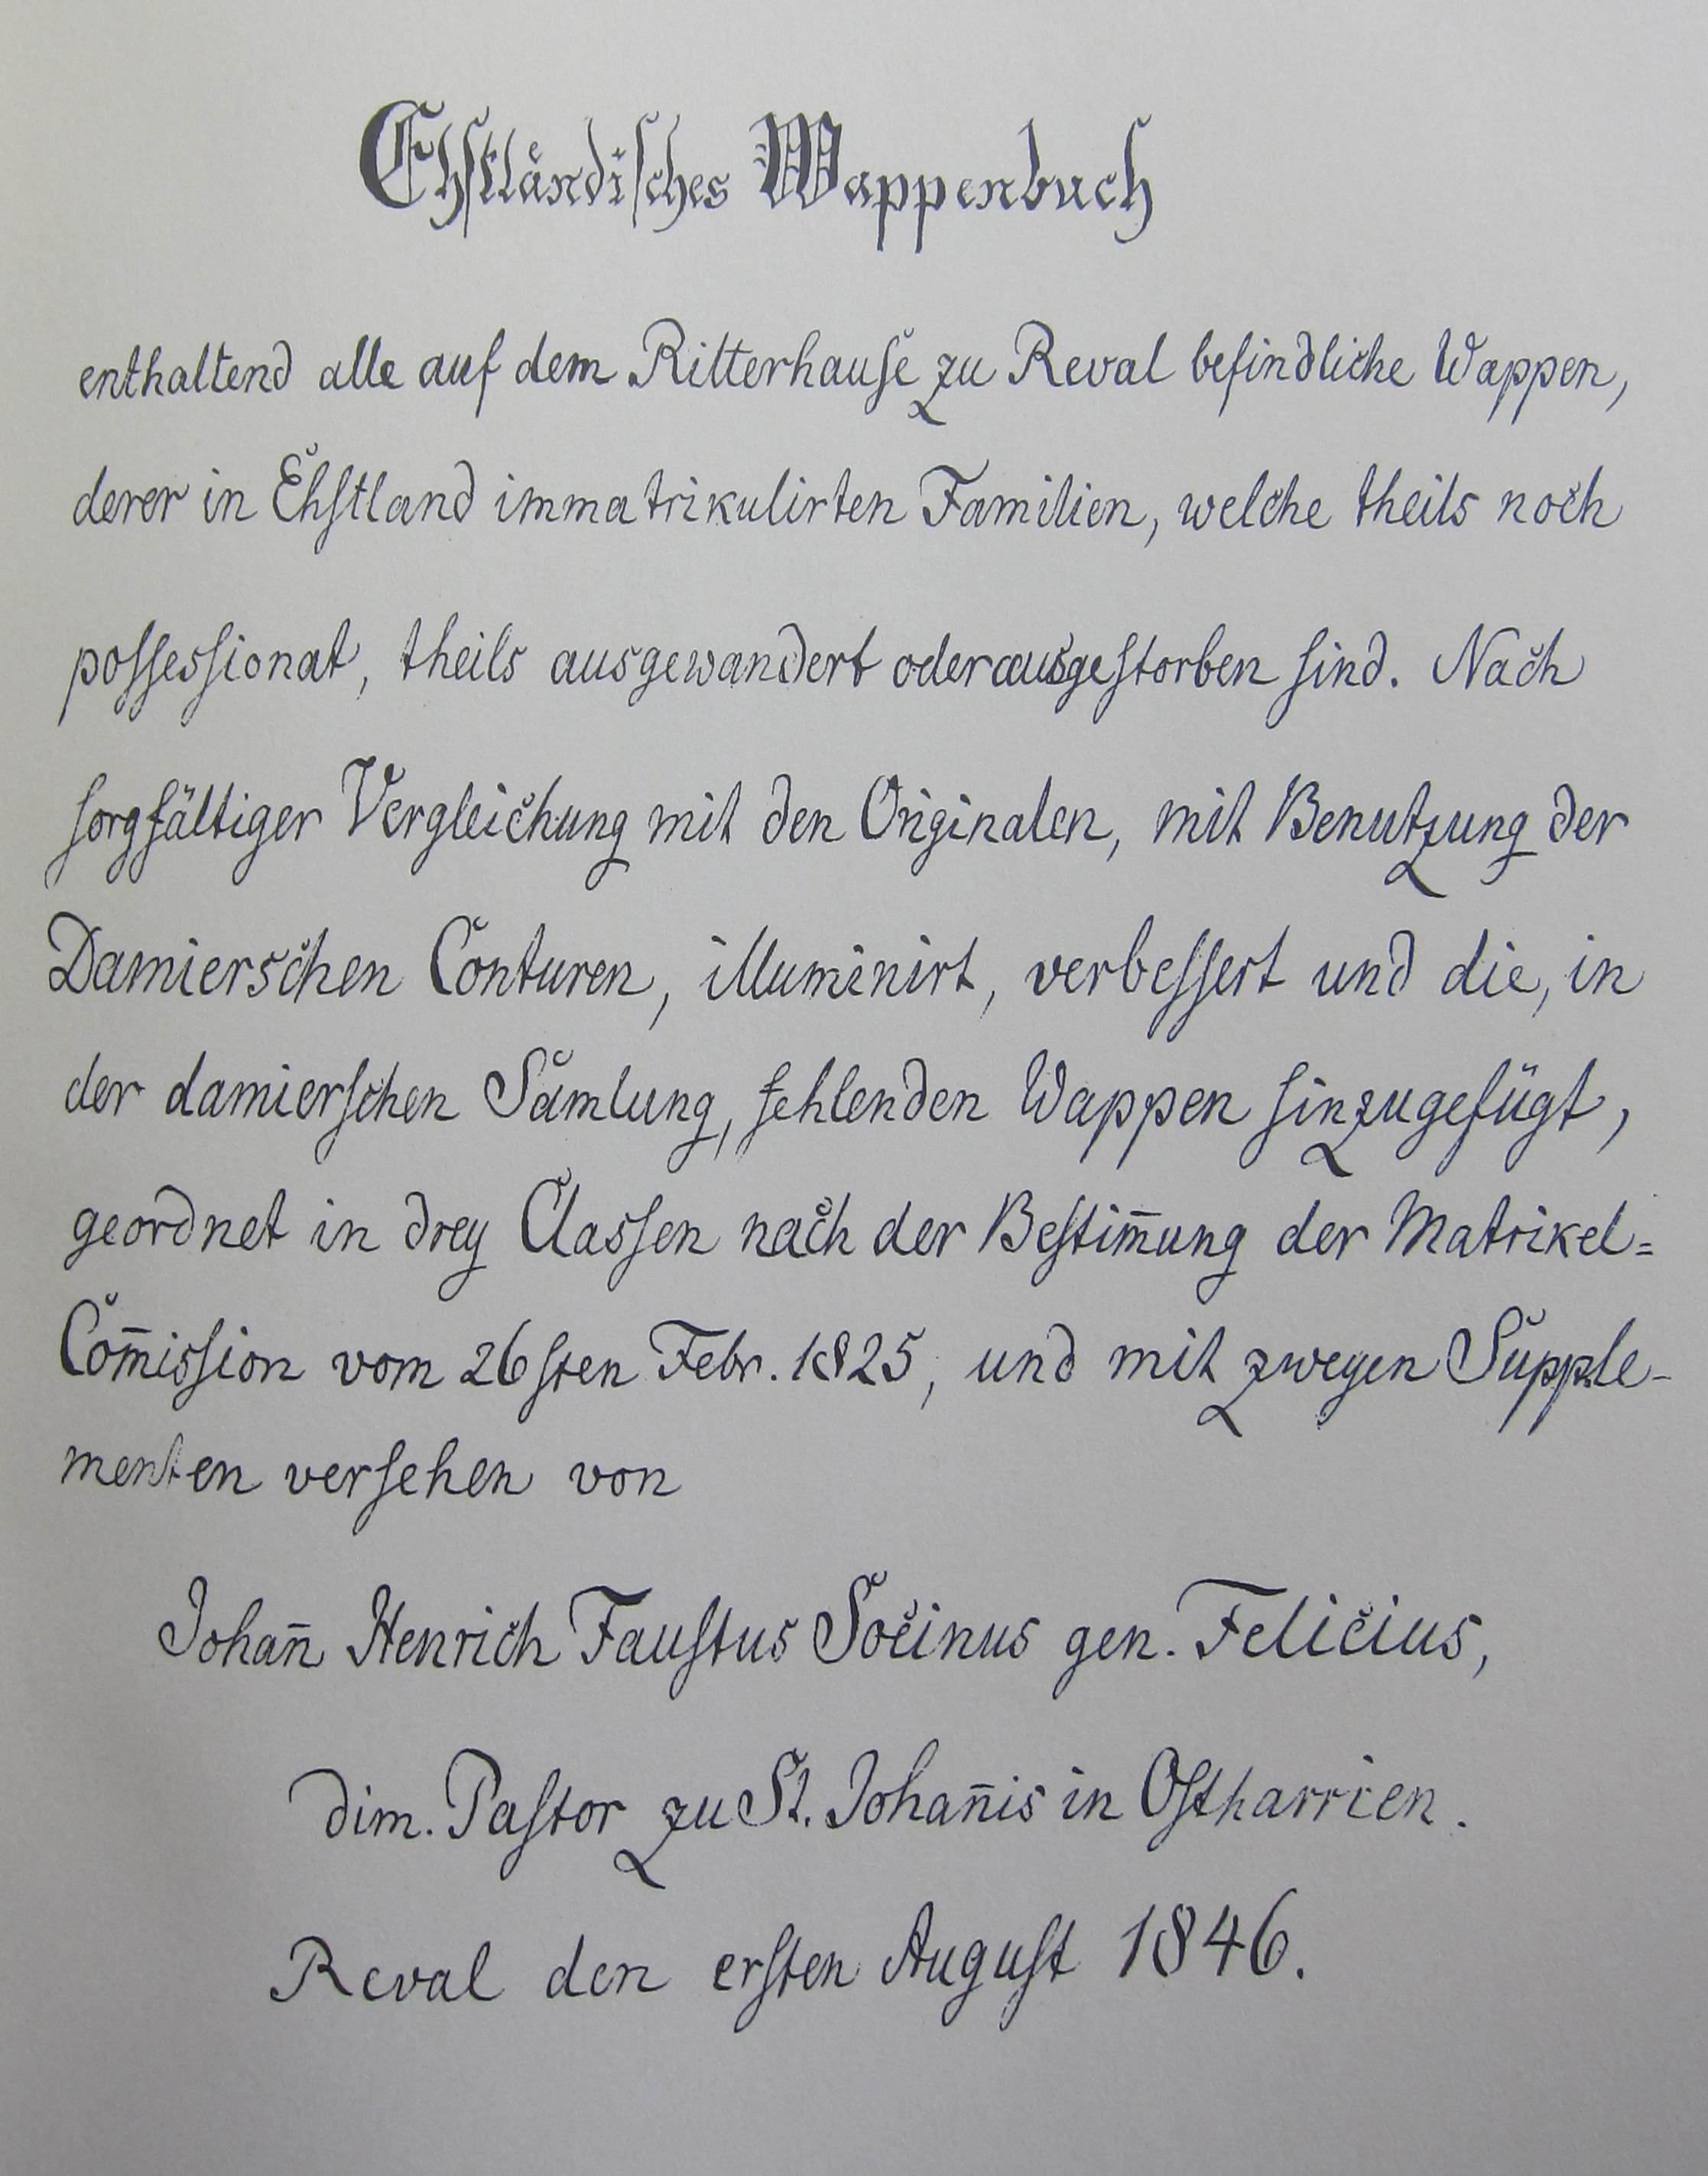 Ehſtländiſches Wappenbuch
enthaltend alle auf dem Ritterhauſe zu Reval befindliche Wappen,
derer in Ehſtland immatrikulirten Familien, welche theils noch
poſſesſionat, theils ausgewandert oder ausgeſtorben ſind. Nach
ſorgfältiger Vergleichung mit den Originalen, mit Benutzung der
Damierschen Conturen, illuminirt, verbeſſert und die, in
der damierſchen Samlung, fehlenden Wappen hinzugefügt,
geordnet in drey Classen nach der Beſtim̄ung der Matrikel=
Com̄isſion vom 26ſten Febr. 1825, und mit zweyen Supple-
menten verſehen von
Johan̄ Henrich Fauſtus Socinus gen. Felicius,
dim. Paſtor zu St. Johan̄is in Oſtharrien.
Reval den erſten Auguſt 1846.